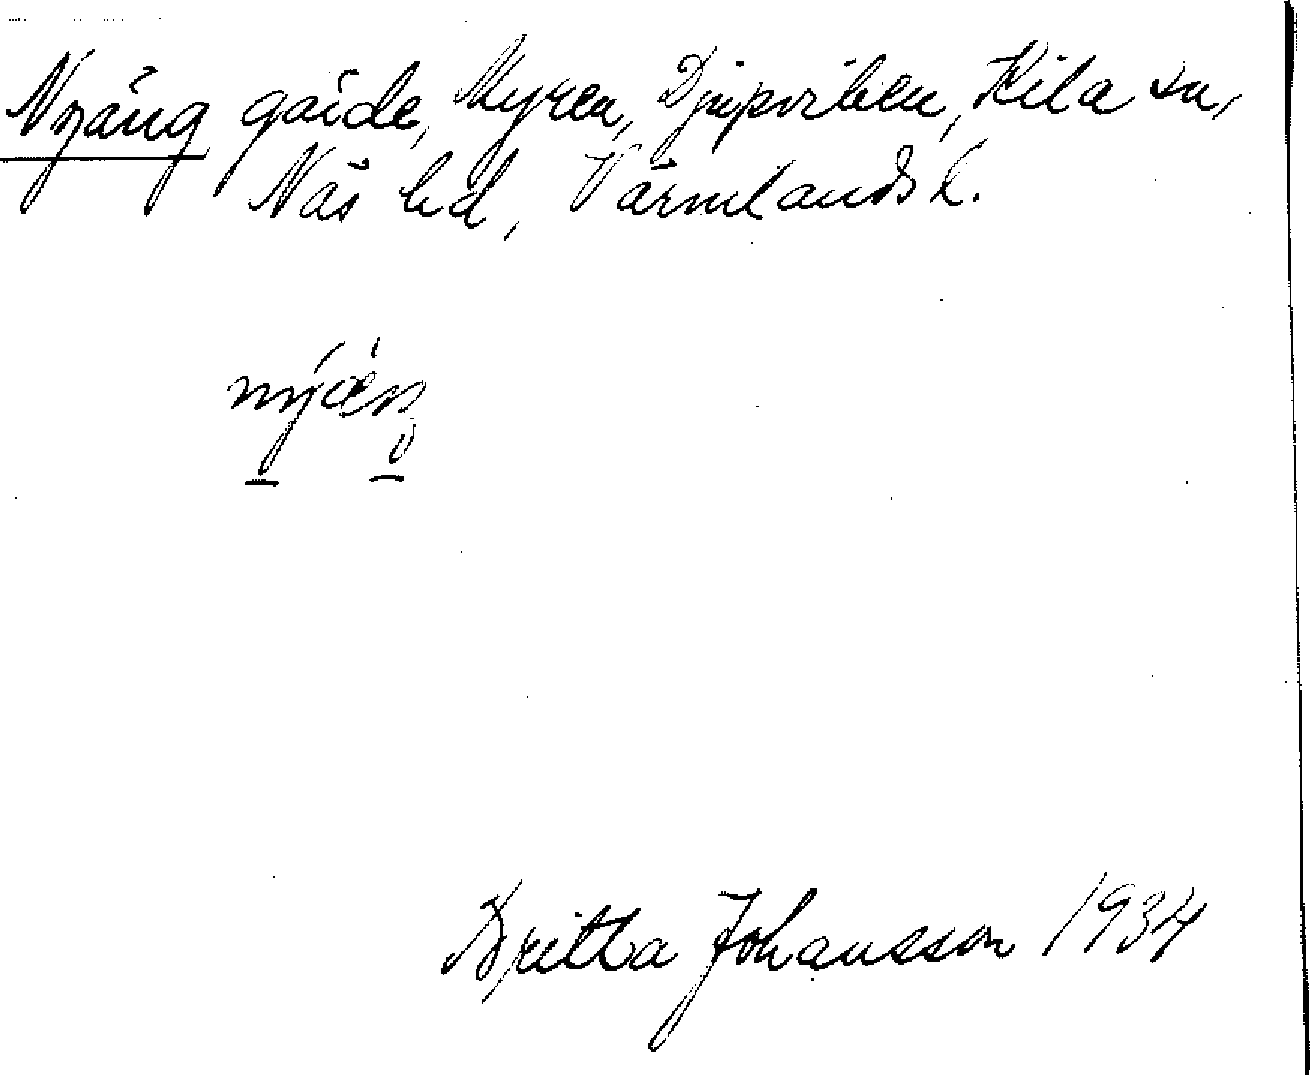 Nyäng gärde, Myren, Djupviken, Kila sn,
Näs hd, Värmlands l.
nýæ̀ŋ
Britta Johansson 1934